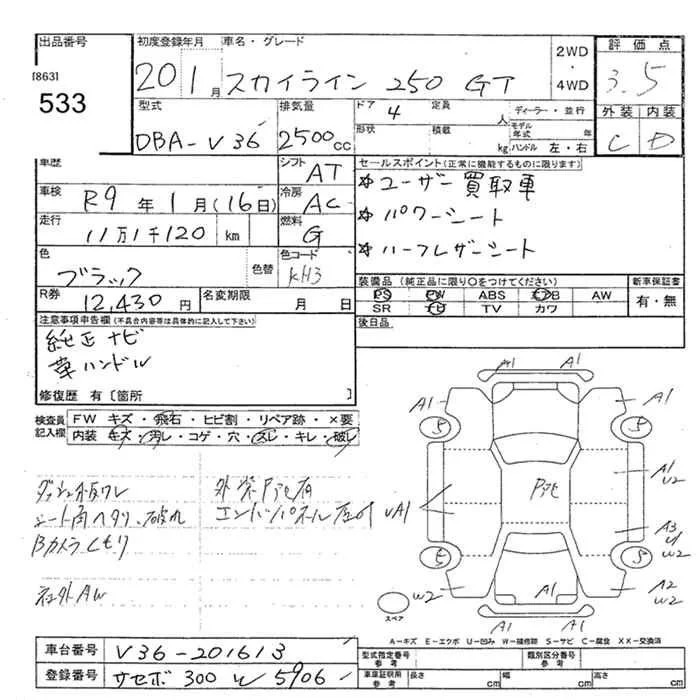 出品番号 初度登録年月 車名・グレード 2WD・4WD 評価点
[863]
533
20 1月 スカイライン 250 GT 3.5
型式 排気量 ドア 4 定員 人 ディーラー・並行 外装 内装
DBA-V36 2500cc 形状 積載 kg モデル年式 年 ハンドル 左・右 C D
車歴 シフト AT セールスポイント(正常に機能するものに限ります)
車検 R9年1月(16日) 冷房 AC ☆ユーザー買取車
走行 11万1千120km 燃料 G ☆パワーシート
色 ブラック 色替 色コード KH3 ☆ハーフレザーシート
R券 12,430円 名変期限 月 日 装備品(純正品に限り○をつけてください) 新車保証書
PS PW ABS エアB AW 有・無
SR ナビ TV カワ
注意事項申告欄(不具合内容等は具体的に記入して下さい) 後日品
純正ナビ
革ハンドル
修復歴 有〔箇所 〕
検査員記入欄 FW キズ・飛石・ヒビ割・リペア跡・×要
内装 キズ・汚レ・コゲ・穴・スレ・キレ・破レ
シート角ヘタリ、破れ
Bカメラくもり
社外AW
A1 A1
A1 5 5 A1
A1 U2
A3
5 5
W2 A1 A2 W2
スペア A1 A1
A-キズ E-エクボ U-凹み W-補修跡 S-サビ C-腐食 XX-交換済
車台番号 V36-201613 型式指定番号 参考 類別区分番号 参考
登録番号 サセボ 300 W 5906 車庫証明用 参考 長さ cm 幅 cm 高さ cm